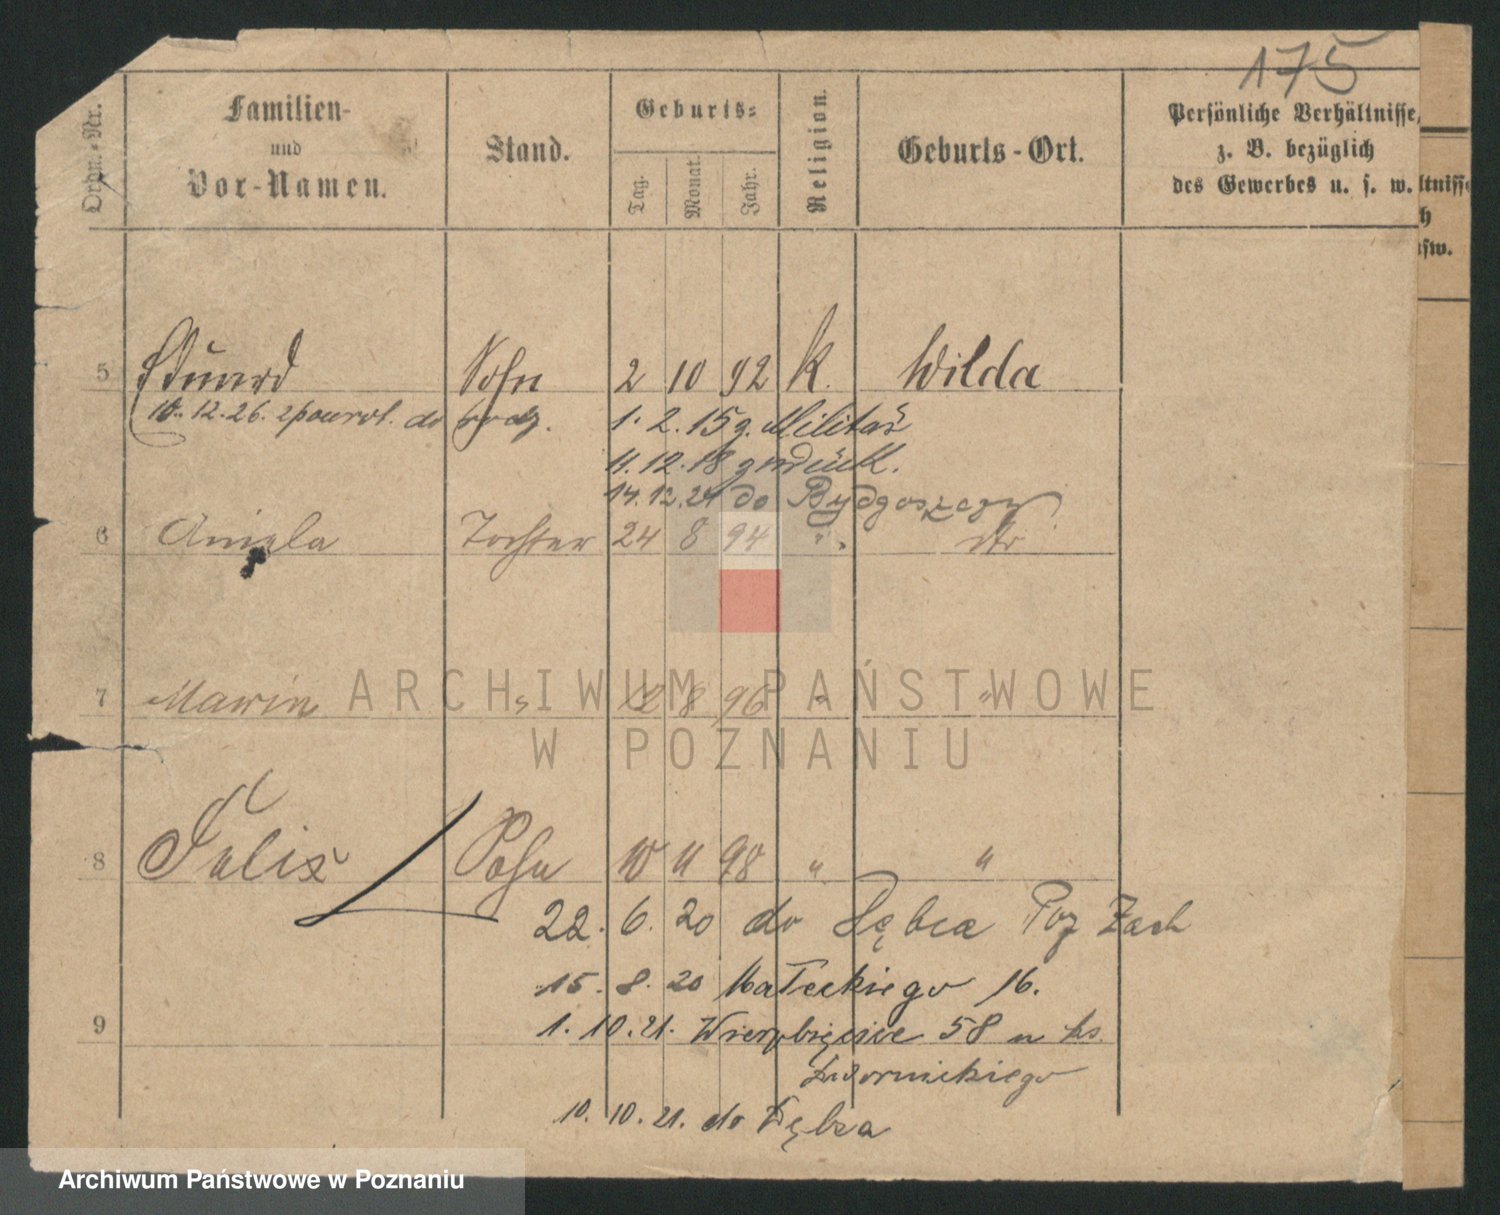 175
Ordn.-Nr.
Familien-
und
Vor-Namen.
Stand.
Geburts-
Tag.
Monat.
Jahr.
Religion.
Geburts-Ort.
Persönliche Verhältnisse,
z. B. bezüglich
des Gewerbes u. s. w.
ltnisse
h
usw.
5 Eduard Sohn 2 10 92 K. Wilda
10.12.26. do 1.2.15 z. Militär
11.12.18 zurück.
14.12.21 do Bydgoszczy
6 Aniela Tochter 24 8 94 " dto
7 Marin " 12 8 96 " "
ARCHIWUM PAŃSTWOWE
W POZNANIU
8 Felix Sohn 10 11 98 " "
22. 6. 20 do Dębca Poz Zach
15. 8. 20 Małeckiego 16.
9 1. 10. 21. Wierzbięcice 58 u ks.
10. 10. 21. do Dębca
Archiwum Państwowe w Poznaniu